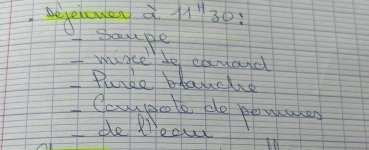 . Déjeuner à 11H30:
- Soupe
- mixé de canard
- Purée blanche
- Compote de pommes
- de l'eau